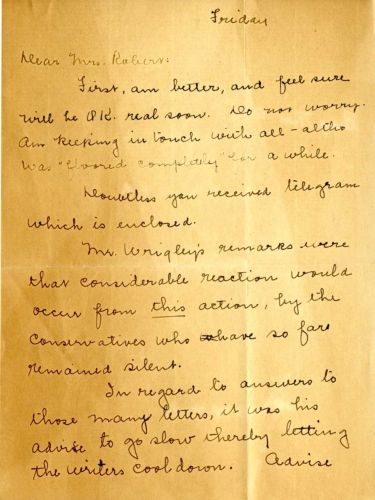 Friday
Dear Mrs. Robert:
First, am better, and feel sure
will be O.K. real soon. Do not worry.
Am keeping in touch with all - altho
was "floored completely for a while.
Doubtless you received telegram
which is enclosed.
Mr. Wrigley's remarks were
that considerable reaction would
occur from this action, by the
Conservatives who have so far
remained silent.
In regard to answers to
those many letters, it was his
advise to go slow thereby letting
the writers cool down. Advise